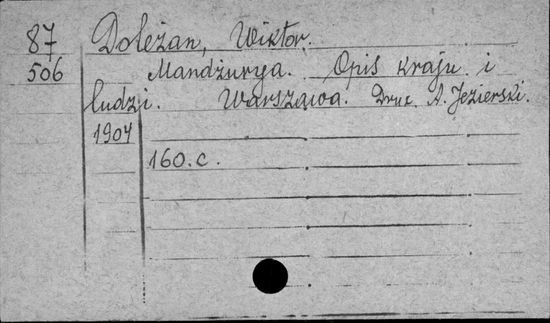 87 Doleżan, Wiktor.
506 Mandżurya. Opis kraju i
ludzi. Warszawa. Druk. A. Jezierski.
1904
160.c.